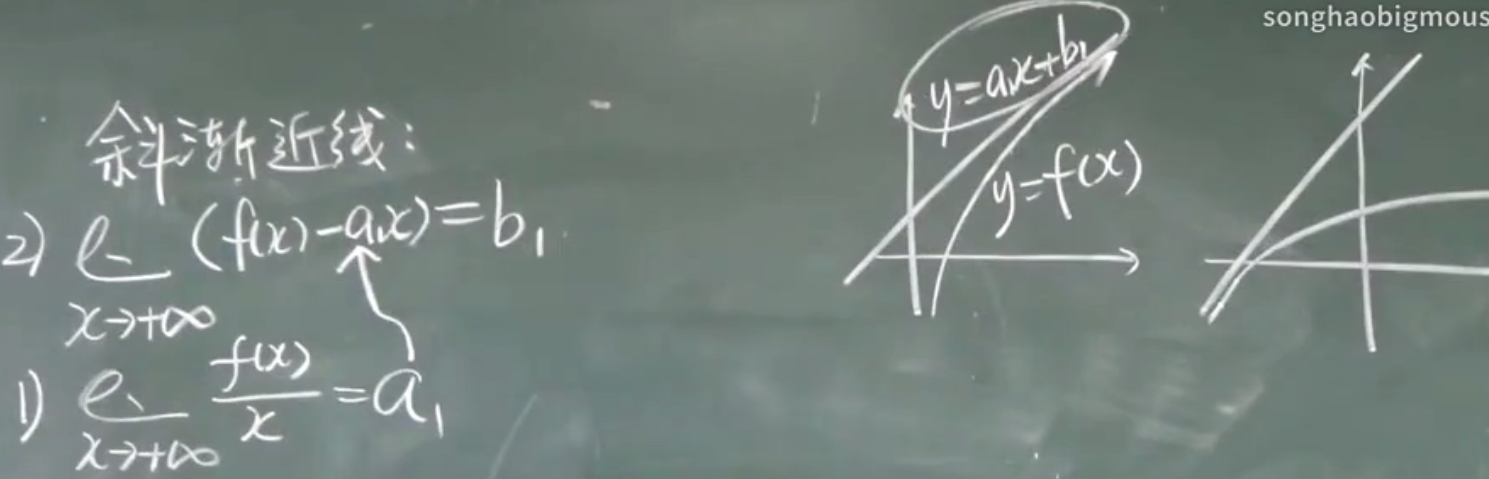 songhaobigmous
斜渐近线:
2) lim (f(x)-a₁x)=b₁
x→+∞
1) lim f(x)/x=a₁
x→+∞
y=a₁x+b₁
y=f(x)